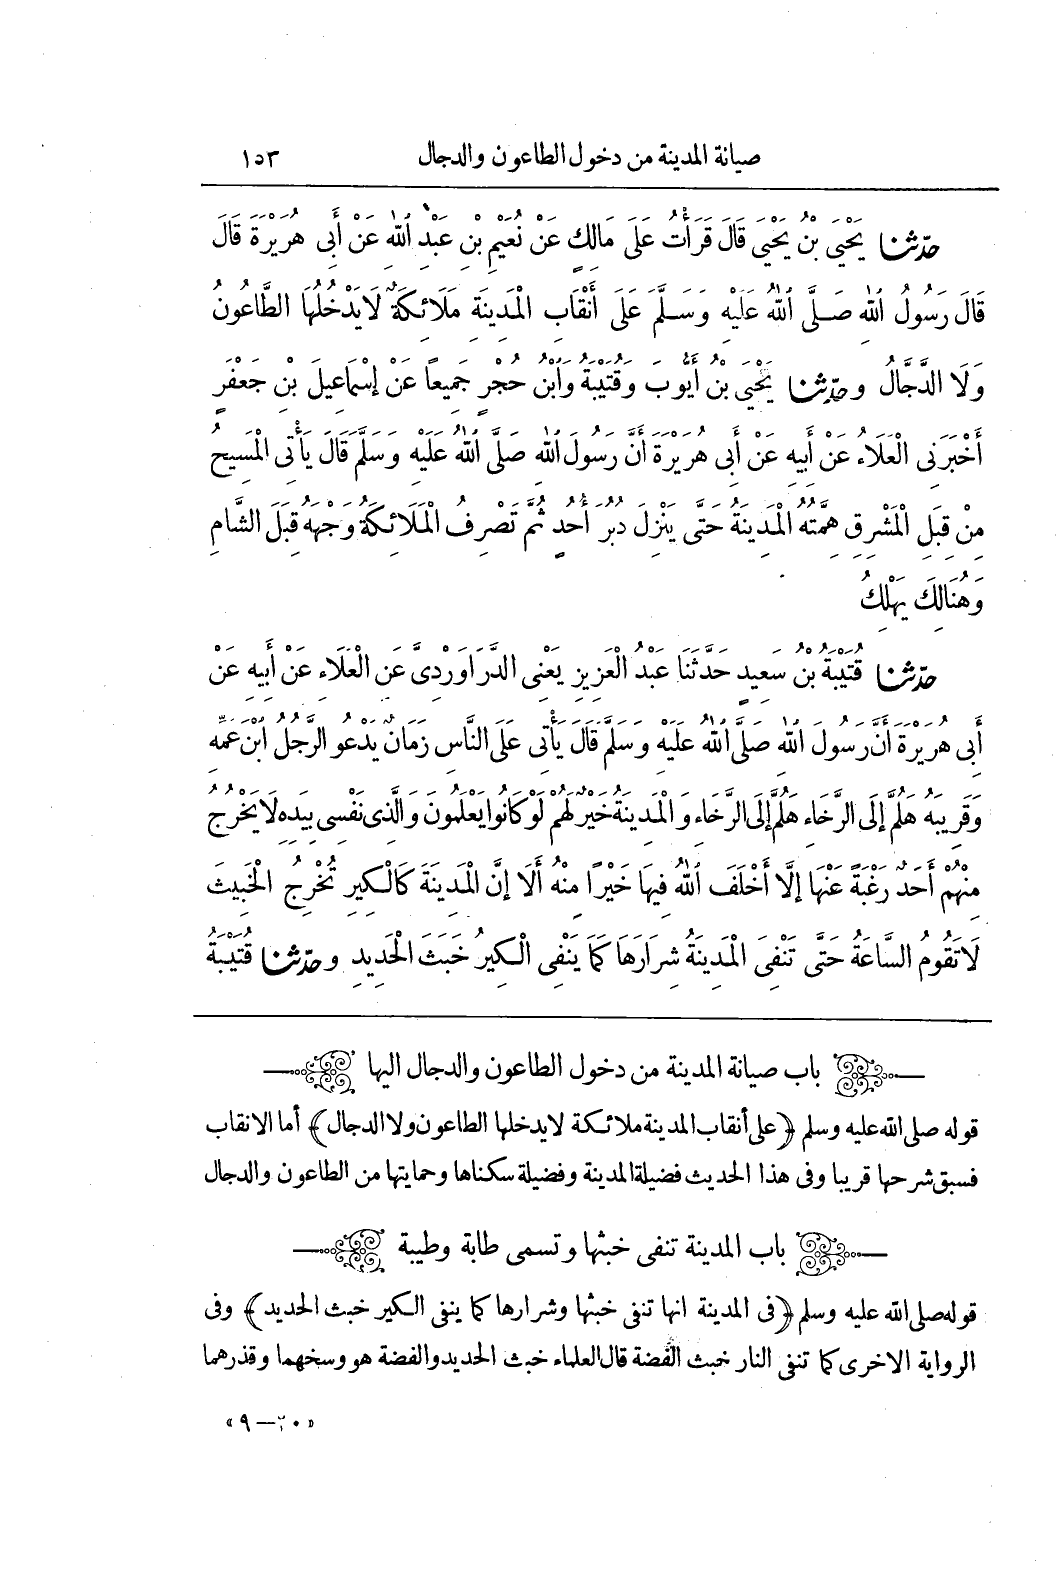 صيانة المدينة من دخول الطاعون والدجال ١٥٣
حدّثنا يَحْيَى بْنُ يَحْيَى قَالَ قَرَأْتُ عَلَى مَالِكٍ عَنْ نُعَيْمِ بْنِ عَبْدِ اللهِ عَنْ أَبِي هُرَيْرَةَ قَالَ
قَالَ رَسُولُ اللهِ صَلَّى اللهُ عَلَيْهِ وَسَلَّمَ عَلَى أَنْقَابِ الْمَدِينَةِ مَلَائِكَةٌ لَا يَدْخُلُهَا الطَّاعُونُ
وَلَا الدَّجَّالُ وحدّثنا يَحْيَى بْنُ أَيُّوبَ وَقُتَيْبَةُ وَابْنُ حُجْرٍ جَمِيعًا عَنْ إِسْمَاعِيلَ بْنِ جَعْفَرٍ
أَخْبَرَنِي الْعَلَاءُ عَنْ أَبِيهِ عَنْ أَبِي هُرَيْرَةَ أَنَّ رَسُولَ اللهِ صَلَّى اللهُ عَلَيْهِ وَسَلَّمَ قَالَ يَأْتِي الْمَسِيحُ
مِنْ قِبَلِ الْمَشْرِقِ هِمَّتُهُ الْمَدِينَةُ حَتَّى يَنْزِلَ دُبُرَ أُحُدٍ ثُمَّ تَصْرِفُ الْمَلَائِكَةُ وَجْهَهُ قِبَلَ الشَّامِ
وَهُنَالِكَ يَهْلِكُ
حدّثنا قُتَيْبَةُ بْنُ سَعِيدٍ حَدَّثَنَا عَبْدُ الْعَزِيزِ يَعْنِي الدَّرَاوَرْدِيَّ عَنِ الْعَلَاءِ عَنْ أَبِيهِ عَنْ
أَبِي هُرَيْرَةَ أَنَّ رَسُولَ اللهِ صَلَّى اللهُ عَلَيْهِ وَسَلَّمَ قَالَ يَأْتِي عَلَى النَّاسِ زَمَانٌ يَدْعُو الرَّجُلُ ابْنَ عَمِّهِ
وَقَرِيبَهُ هَلُمَّ إِلَى الرَّخَاءِ هَلُمَّ إِلَى الرَّخَاءِ وَالْمَدِينَةُ خَيْرٌ لَهُمْ لَوْ كَانُوا يَعْلَمُونَ وَالَّذِي نَفْسِي بِيَدِهِ لَا يَخْرُجُ
مِنْهُمْ أَحَدٌ رَغْبَةً عَنْهَا إِلَّا أَخْلَفَ اللهُ فِيهَا خَيْرًا مِنْهُ أَلَا إِنَّ الْمَدِينَةَ كَالْكِيرِ تُخْرِجُ الْخَبِيثَ
لَا تَقُومُ السَّاعَةُ حَتَّى تَنْفِيَ الْمَدِينَةُ شِرَارَهَا كَمَا يَنْفِي الْكِيرُ خَبَثَ الْحَدِيدِ وحدّثنا قُتَيْبَةُ
باب صيانة المدينة من دخول الطاعون والدجال اليها
قوله صلى الله عليه وسلم ﴿على أنقاب المدينة ملائكة لا يدخلها الطاعون ولا الدجال﴾ أما الانقاب
فسبق شرحها قريبا وفى هذا الحديث فضيلة المدينة وفضيلة سكناها وحمايتها من الطاعون والدجال
باب المدينة تنفى خبثها وتسمى طابة وطيبة
قوله صلى الله عليه وسلم ﴿فى المدينة انها تنفى خبثها وشرارها كما ينفى الكير خبث الحديد﴾ وفى
الرواية الاخرى كما تنفى النار خبث الفضة قال العلماء خبث الحديد والفضة هو وسخهما وقذرهما
«٢٠ — ٩»